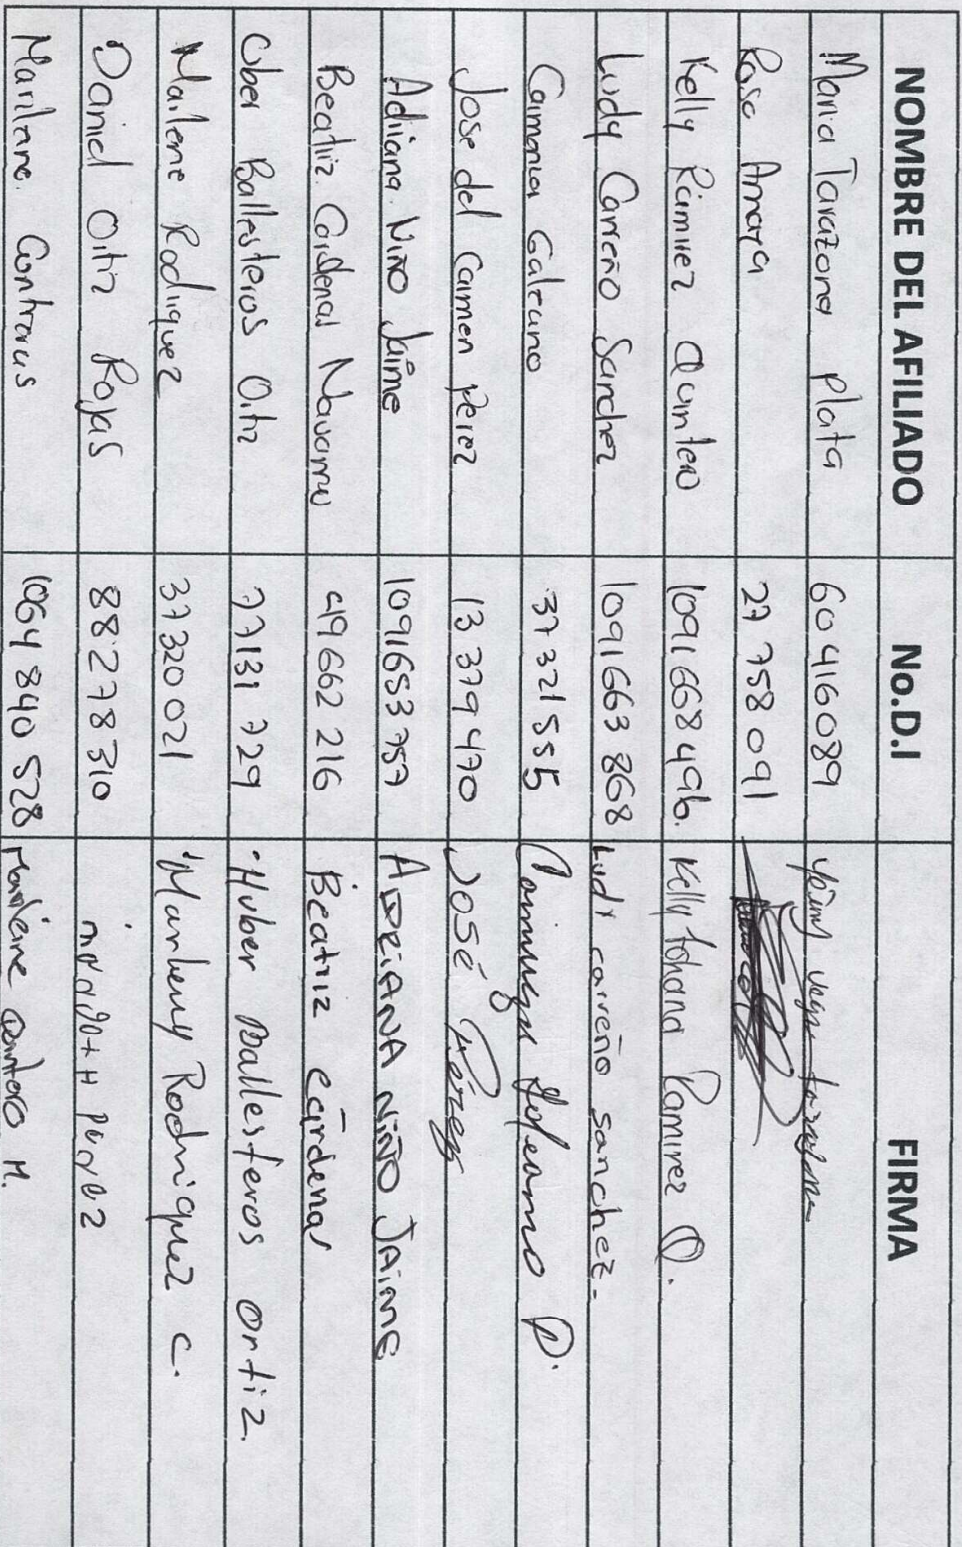 NOMBRE DEL AFILIADO No.D.I FIRMA
Maria Tarazona plata 60416089
Rosa Amaya 27 758 091
Kelly Ramirez Quintero 1091 668 496. Kelly Johana Ramirez Q.
Ludy Carreño Sanchez 1091663 868 Ludy carreño sanchez.
Galeano 37 321 555
Jose del Carmen perez 13 379 470 José Pérez
Adriana Niño Jaime 1091653 757 ADRIANA NIÑO JAIME
Beatriz Cardenas Navarro 49 662 216 Beatriz Cárdenas
Uber Ballesteros Ortiz 77131 729 Huber Ballesteros Ortiz.
Marlene Rodriguez 37320 021 Marleny Rodriguez C.
Daniel Ortiz Rojas 88 278 310
Marilene Contreras 1064 840 528